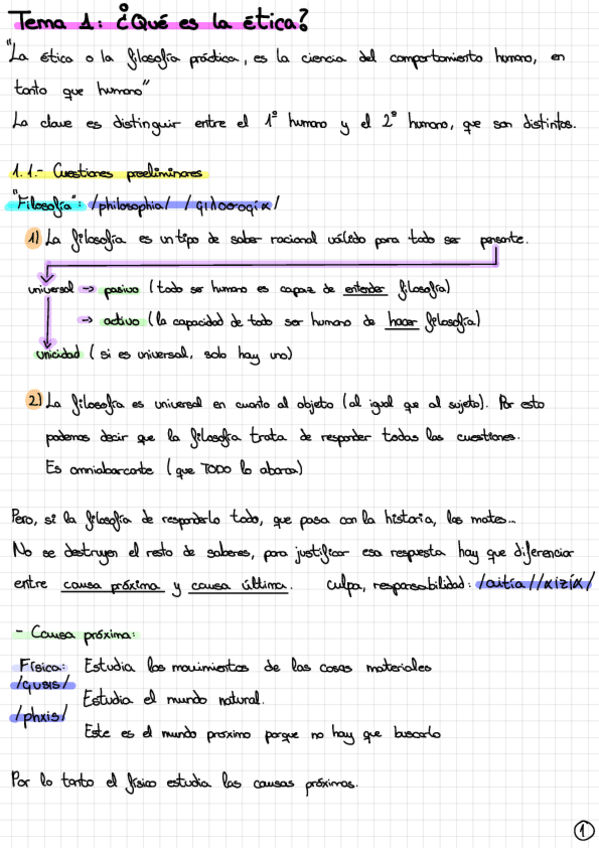 Tema 1: ¿Qué es la ética?
"La ética o la filosofía práctica, es la ciencia del comportamiento humano, en
tanto que humano"
La clave es distinguir entre el 1º humano y el 2º humano, que son distintos.
1.1.- Cuestiones preeliminares
"Filosofía": /philosophia/ /φιλοσοφία/
1) La filosofía es un tipo de saber racional válido para todo ser pensante.
universal → pasivo (todo ser humano es capaz de entender filosofía)
→ activo (la capacidad de todo ser humano de hacer filosofía)
unicidad (si es universal, solo hay uno)
2) La filosofía es universal en cuanto al objeto (al igual que al sujeto). Por esto
podemos decir que la filosofía trata de responder todas las cuestiones.
Es omniabarcante (que TODO lo abarca)
Pero, si la filosofía de responderlo todo, que pasa con la historia, las mates...
No se destruyen el resto de saberes, para justificar esa respuesta hay que diferenciar
entre causa próxima y causa última. culpa, responsabilidad: /aitía/
- Causa próxima:
Física: Estudia los movimientos de las cosas materiales
/phxis/
Estudia el mundo natural.
Este es el mundo proximo porque no hay que buscarlo
Por lo tanto el físico estudia las causas próximas.
1